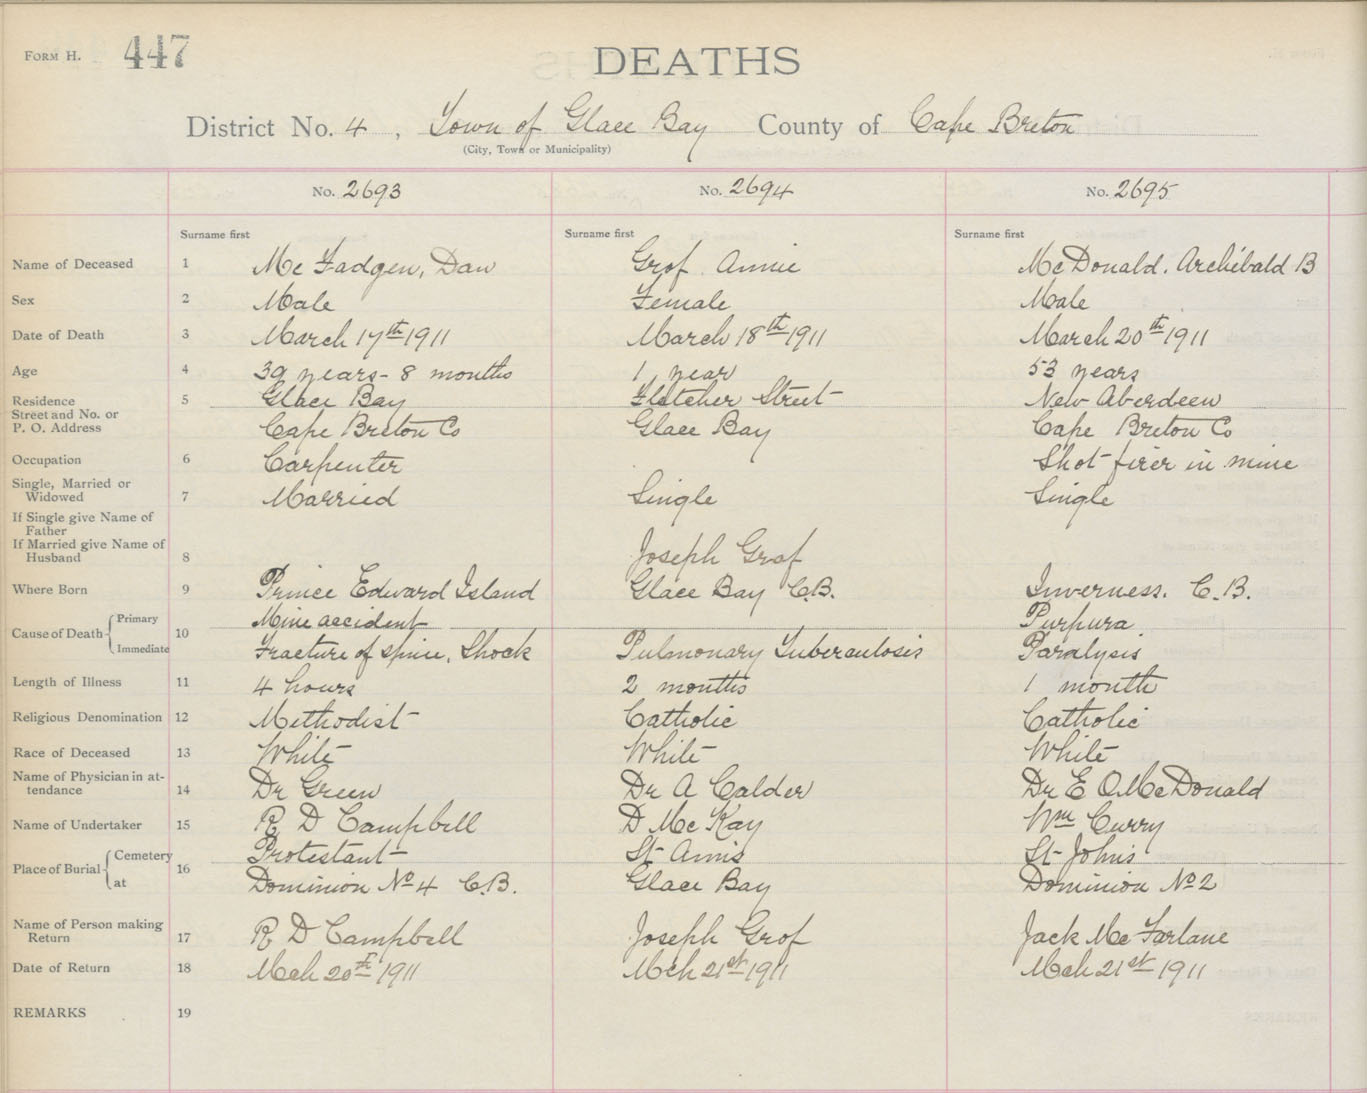 FORM H. 447
DEATHS
District No. 4, Town of Glace Bay County of Cape Breton
(City, Town or Municipality)
No. 2693 No. 2694 No. 2695
Surname first Surname first Surname first
Name of Deceased 1 McFadgen, Dan Grof Annie McDonald. Archibald B
Sex 2 Male Female Male
Date of Death 3 March 17th 1911 March 18th 1911 March 20th 1911
Age 4 39 years - 8 months 1 year 53 years
Residence 5 Glace Bay Fletcher Street New Aberdeen
Street and No. or
P. O. Address Cape Breton Co Glace Bay Cape Breton Co
Occupation 6 Carpenter Shot-firer in mine
Single, Married or
Widowed 7 Married Single Single
If Single give Name of
Father
If Married give Name of
Husband 8 Joseph Grof
Where Born 9 Prince Edward Island Glace Bay C.B. Inverness. C.B.
Primary Mine accident Purpura
Cause of Death 10
Immediate Fracture of spine, Shock Pulmonary Tuberculosis Paralysis
Length of Illness 11 4 hours 2 months 1 month
Religious Denomination 12 Methodist Catholic Catholic
Race of Deceased 13 White White White
Name of Physician in at-
tendance 14 Dr Green Dr A Calder Dr E O. McDonald
Name of Undertaker 15 R D Campbell D McKay Wm Curry
Cemetery Protestant St Anns St John's
Place of Burial 16
at Dominion No 4 C.B. Glace Bay Dominion No 2
Name of Person making
Return 17 R D Campbell Joseph Grof Jack McFarlane
Date of Return 18 Mch 20th 1911 Mch 21st 1911 Mch 21st 1911
REMARKS 19